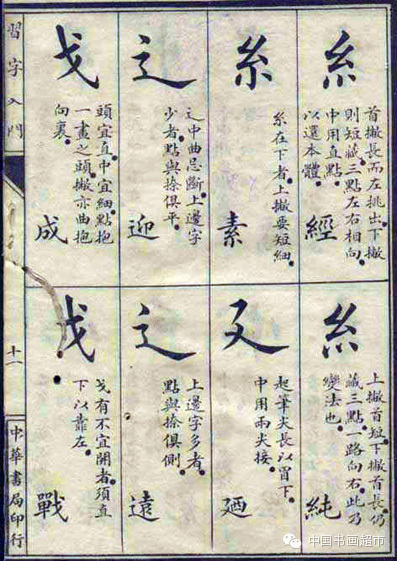 糸
首撇長而左挑出。下撇
則短藏。三點左右相向。
中用直點。
以還本體。
經
糸
糸在下者。上撇要短細。
素
辶
辶中曲忌斷。上邊字
少者。點與捺俱平。
迎
戈
頭宜直。中宜細。點抱
一畫之頭。撇亦曲抱
向裏。
成
糸
上撇首短。下撇首長。仍
藏三點。一路向右。此乃
變法也。
純
廴
起筆尖長以冒下。
中用兩尖接。
廼
辶
上邊字多者。
點與捺俱側。
遠
戈
戈有不宜開者。須直
下以靠左。
戰
習字入門
十一
中華書局印行
中国书画超市